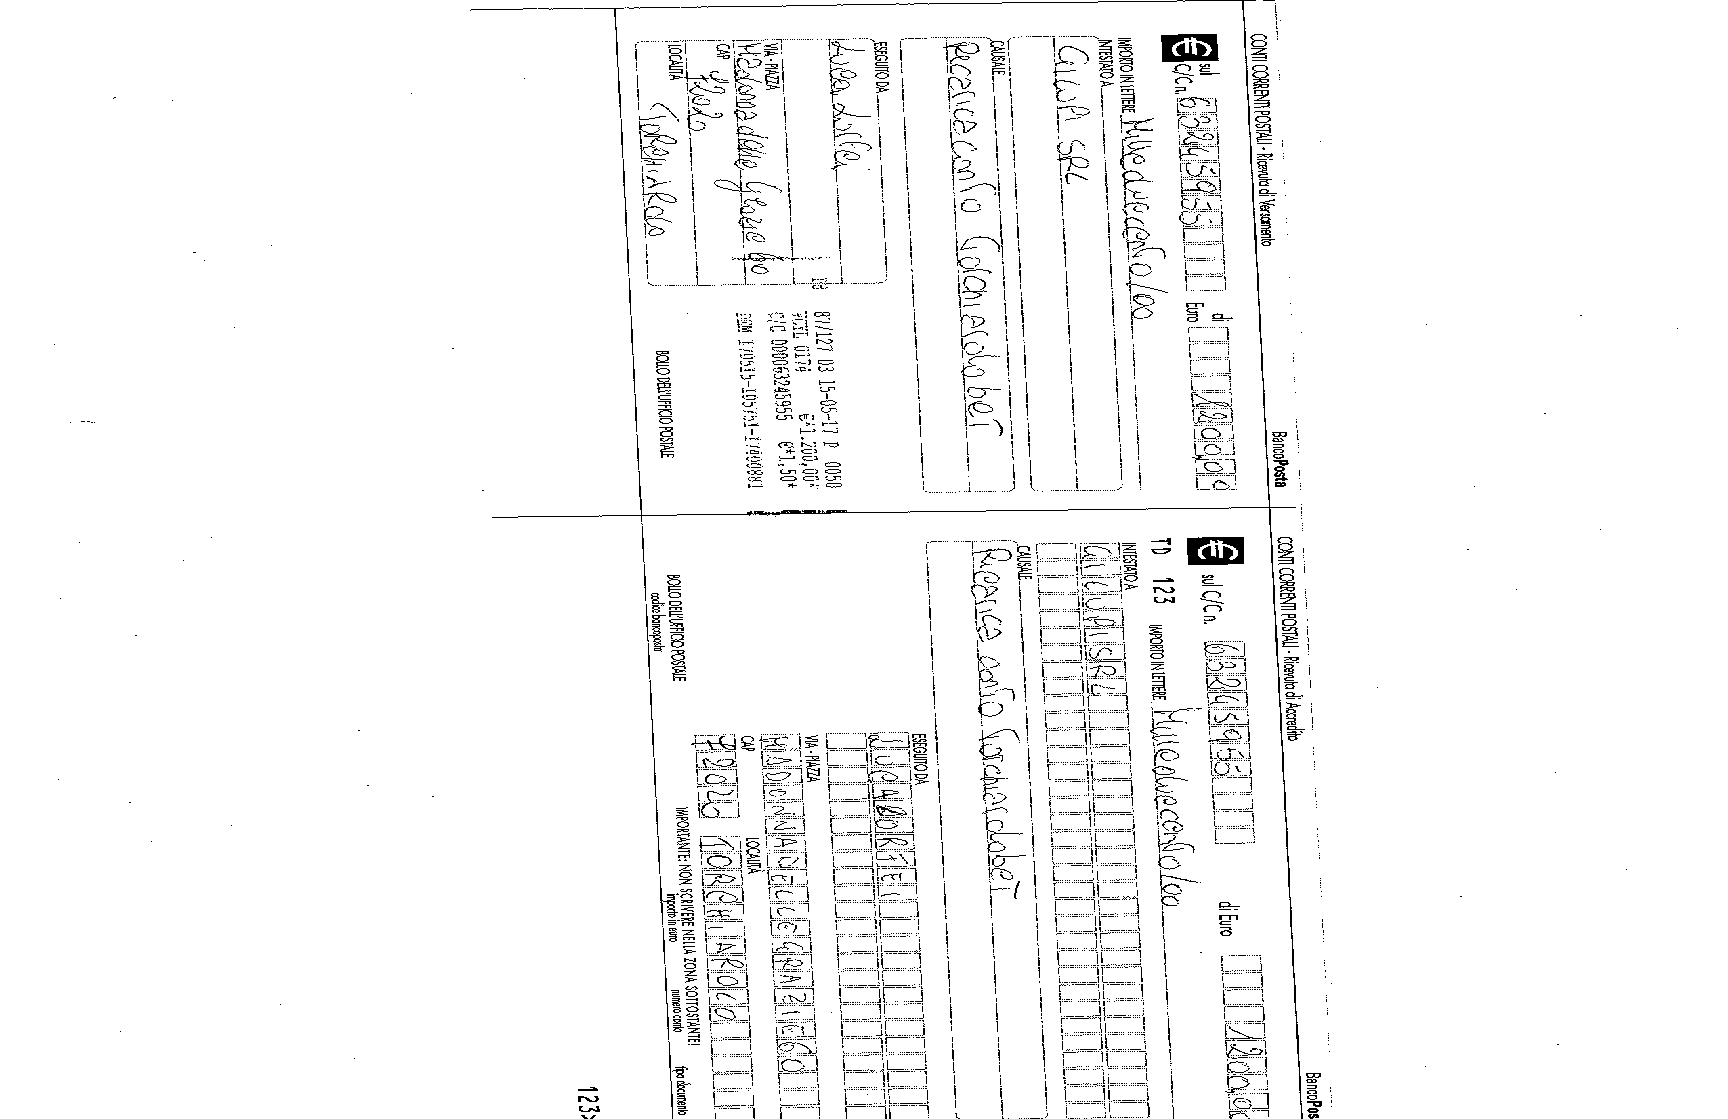 CONTI CORRENTI POSTALI - Ricevuta di Versamento
BancoPosta
€ sul C/C n. 63245955 di Euro 1200,00
IMPORTO IN LETTERE Milleduecento/00
INTESTATO A
GILUPI SRL
CAUSALE
Ricarica conto Torchiarolobet
ESEGUITO DA
VIA - PIAZZA
Madonna delle Grazie 60
CAP
72020
LOCALITÀ
TORCHIAROLO
87/127 03 15-05-17 P 0050
0174 €*1.200,00*
C/C 000063245955 €*1,50*
BOLLO DELL'UFFICIO POSTALE
CONTI CORRENTI POSTALI - Ricevuta di Accredito
BancoPos
€ sul C/C n. 63245955 di Euro 1200,0
TD 123 IMPORTO IN LETTERE Milleduecento/00
INTESTATO A
GILUPI SRL
CAUSALE
Ricarica conto Torchiarolobet
ESEGUITO DA
VIA - PIAZZA
MADONNA DELLE GRAZIE 60
CAP LOCALITÀ
72020 TORCHIAROLO
BOLLO DELL'UFFICIO POSTALE
codice bancoposta
IMPORTANTE: NON SCRIVERE NELLA ZONA SOTTOSTANTE!
importo in euro numero conto tipo documento
123>